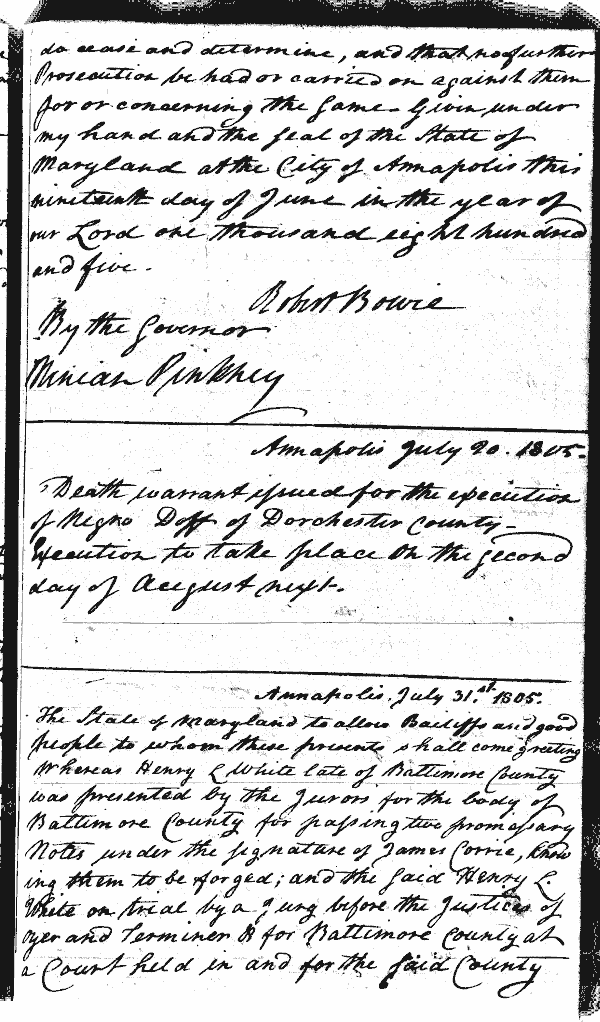 do cease and determine, and that no further
Prosecution be had or carried on against them
for or concerning the same - Given under
my hand and the seal of the State of
Maryland at the City of Annapolis this
nineteenth day of June in the year of
our Lord one thousand eight hundred
and five.
Robert Bowie
By the Governor
Ninian Pinkney
Annapolis July 20. 1805.
Death warrant issued for the execution
of Negro Doff of Dorchester County -
Execution to take place on the second
day of August next.
Annapolis. July 31.st 1805.
The State of Maryland to all Bailiffs and good
people to whom these presents shall come greeting
Whereas Henry L White late of Baltimore County
was presented by the Jurors for the body of
Baltimore County for passing two promossary
Notes under the signature of James Corrie, know
ing them to be forged; and the said Henry L.
White on trial by a Jury before the Justices of
oyer and Terminer &c for Baltimore County at
a Court held in and for the said County